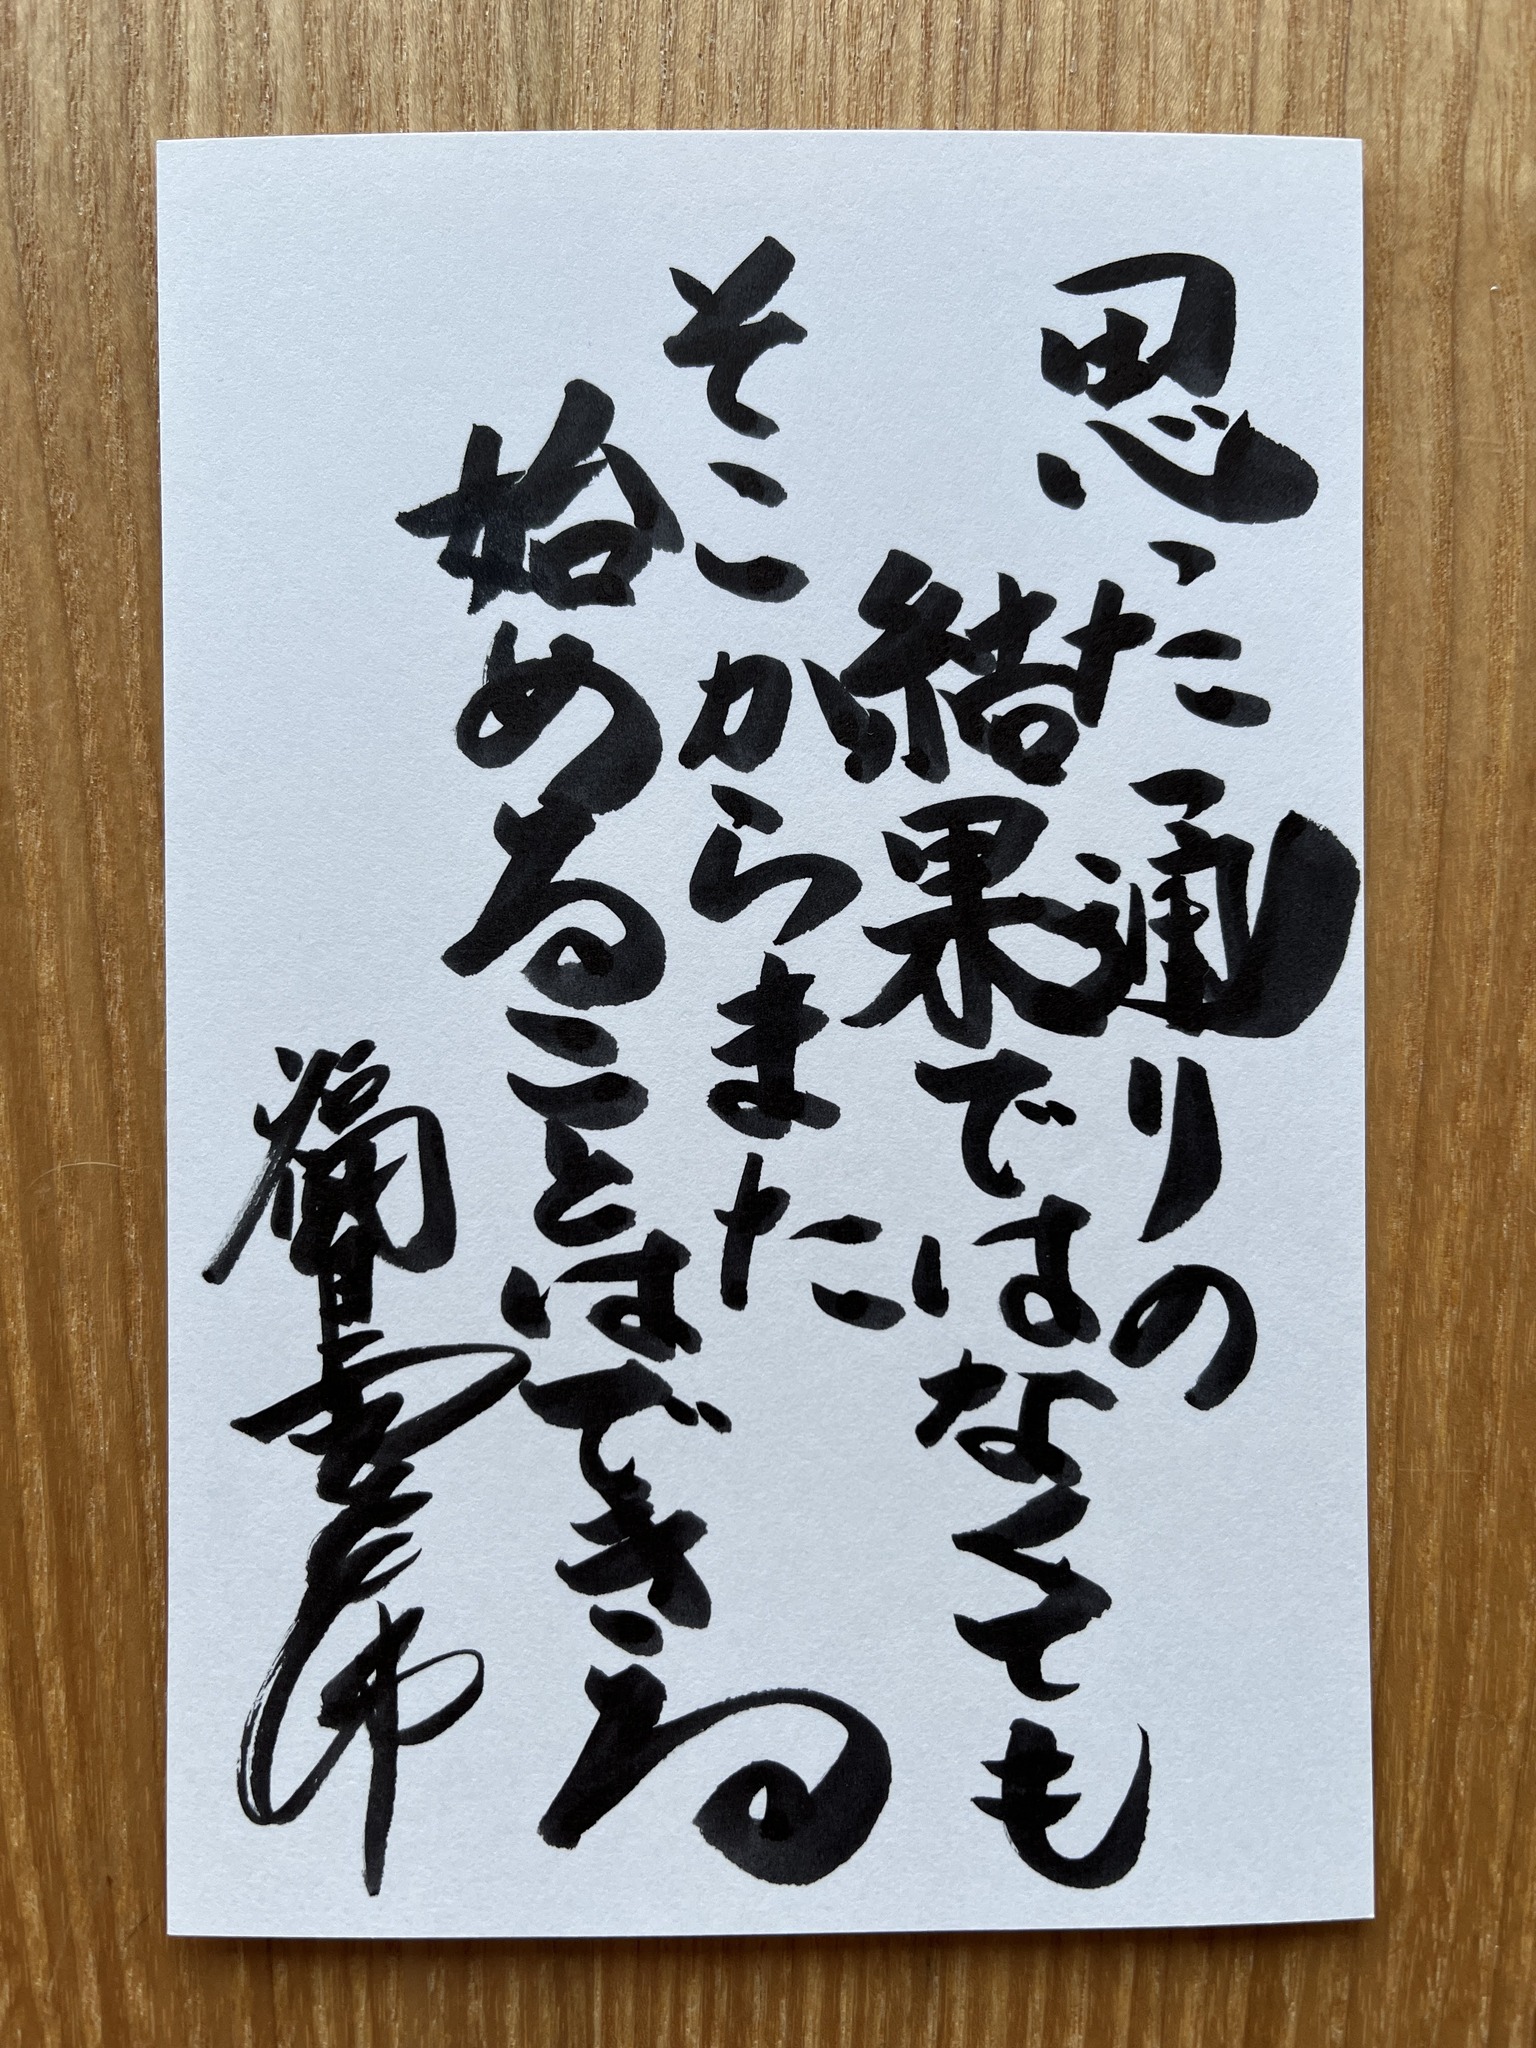 思った通りの
結果ではなくても
そこからまた
始めることはできる